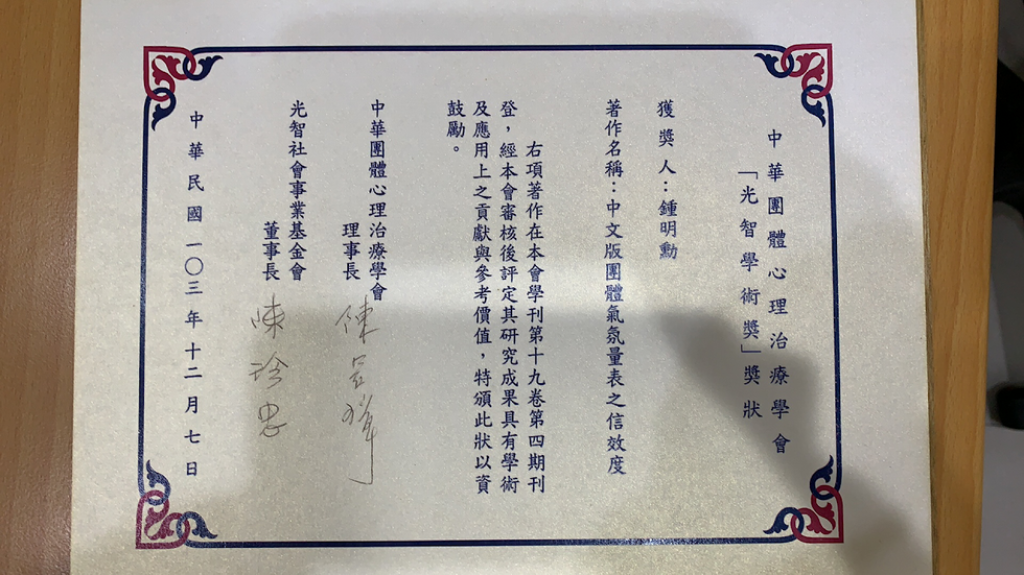 中華團體心理治療學會
「光智學術獎」獎狀
獲獎人：鍾明勳
著作名稱：中文版團體氣氛量表之信效度
右項著作在本會學刊第十九卷第四期刊
登，經本會審核後評定其研究成果具有學術
及應用上之貢獻與參考價值，特頒此狀以資
鼓勵。
中華團體心理治療學會
理事長
光智社會事業基金會
董事長 陳珍忠
中華民國一〇三年十二月七日